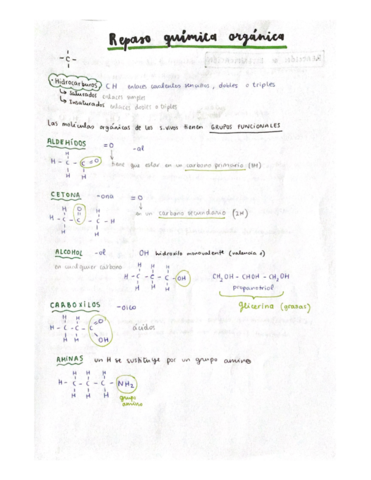 Repaso química orgánica
- C -
Hidrocarburos C H enlaces covalentes sencillos, dobles o triples
↳ Saturados enlaces simples
↳ Insaturados enlaces dobles o triples
Las moléculas orgánicas de los s.vivos tienen GRUPOS FUNCIONALES
ALDEHÍDOS =O -al
H - C - C - C = O
H H H
tiene que estar en un carbono primario (1H)
CETONA -ona =O
H O H
H - C - C - C - H
H H
en un carbono secundario
ALCOHOL -ol OH hidroxilo monovalente (valencia 1)
en cualquier carbono
H H H
H - C - C - C - OH
H H H
CH2OH - CHOH - CH2OH
propanotriol
glicerina (grasas)
CARBOXILOS -oico
H H
H - C - C - C = O
H H OH
ácidos
AMINAS un H se sustituye por un grupo amino
H H H
H - C - C - C - NH2
H H H
grupo
amino